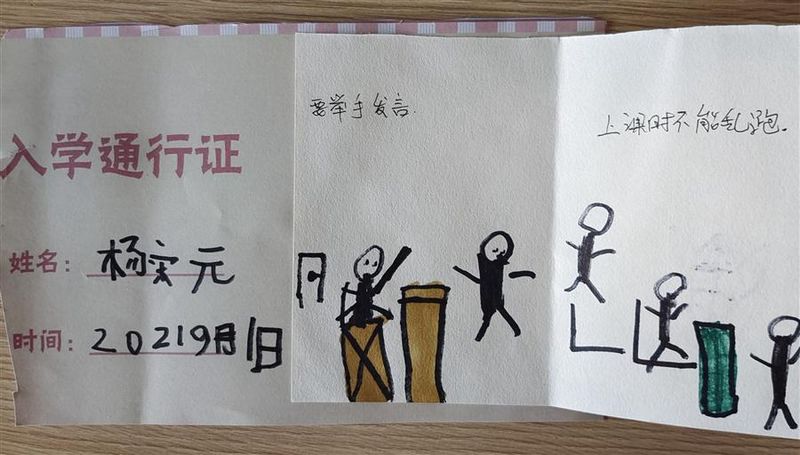 入学通行证
姓名：杨宋元
时间：20219月1日
要举手发言.
上课时不能乱跑.